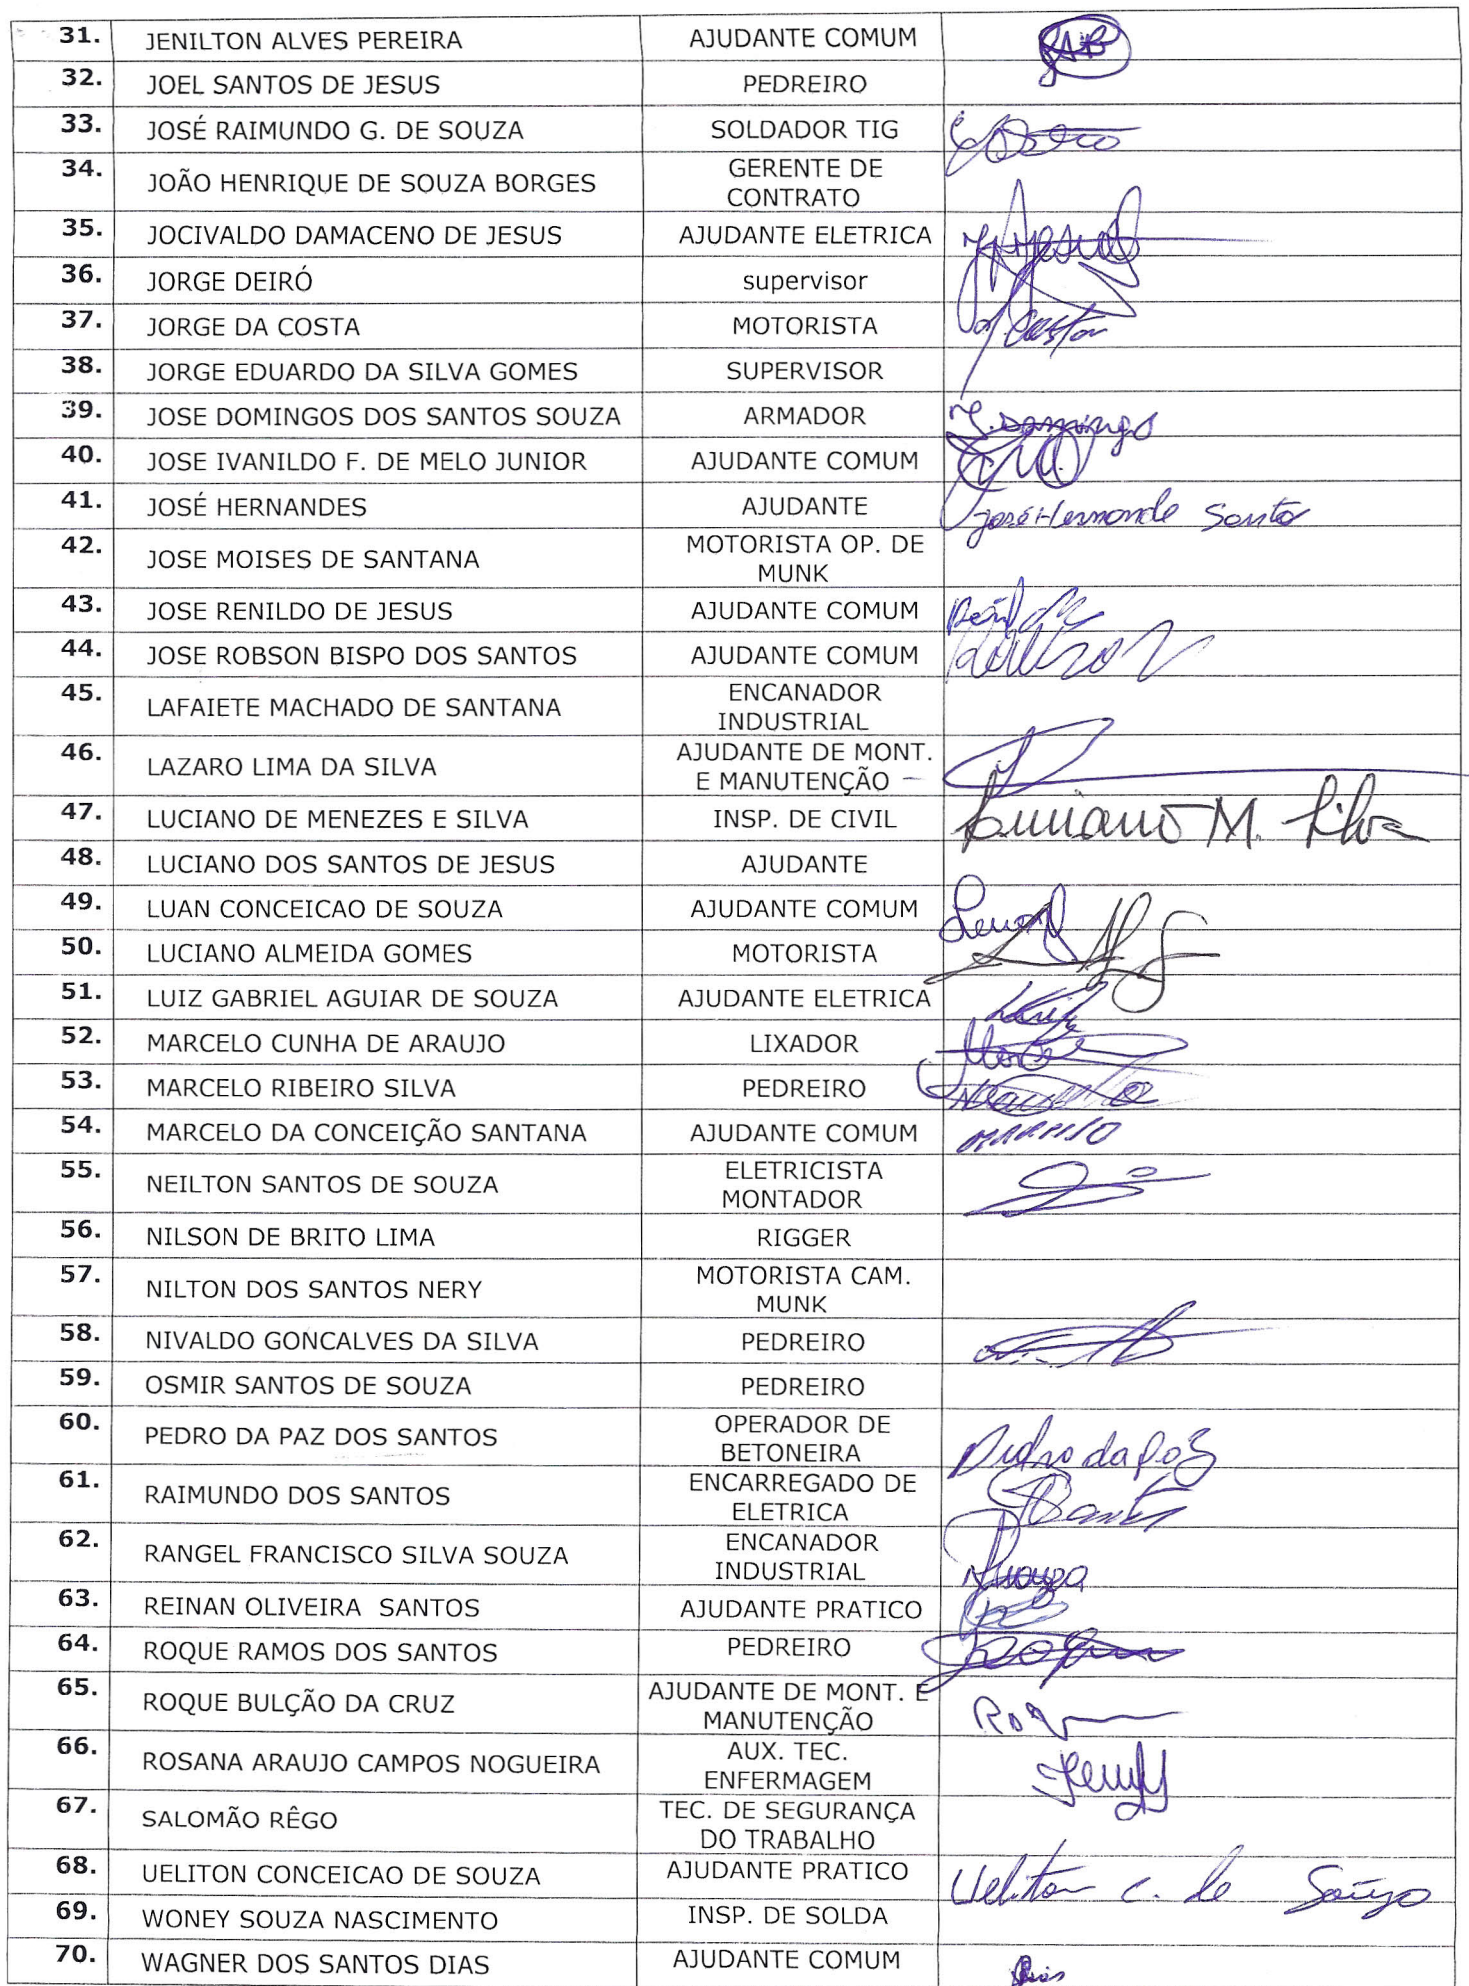 31. JENILTON ALVES PEREIRA AJUDANTE COMUM
32. JOEL SANTOS DE JESUS PEDREIRO
33. JOSÉ RAIMUNDO G. DE SOUZA SOLDADOR TIG
34. JOÃO HENRIQUE DE SOUZA BORGES GERENTE DE
CONTRATO
35. JOCIVALDO DAMACENO DE JESUS AJUDANTE ELETRICA
36. JORGE DEIRÓ supervisor
37. JORGE DA COSTA MOTORISTA
38. JORGE EDUARDO DA SILVA GOMES SUPERVISOR
39. JOSE DOMINGOS DOS SANTOS SOUZA ARMADOR J. Domingo
40. JOSE IVANILDO F. DE MELO JUNIOR AJUDANTE COMUM
41. JOSÉ HERNANDES AJUDANTE José Hernande Santo
42. JOSE MOISES DE SANTANA MOTORISTA OP. DE
MUNK
43. JOSE RENILDO DE JESUS AJUDANTE COMUM
44. JOSE ROBSON BISPO DOS SANTOS AJUDANTE COMUM
45. LAFAIETE MACHADO DE SANTANA ENCANADOR
INDUSTRIAL
46. LAZARO LIMA DA SILVA AJUDANTE DE MONT.
E MANUTENÇÃO
47. LUCIANO DE MENEZES E SILVA INSP. DE CIVIL Luciano M. Silva
48. LUCIANO DOS SANTOS DE JESUS AJUDANTE
49. LUAN CONCEICAO DE SOUZA AJUDANTE COMUM
50. LUCIANO ALMEIDA GOMES MOTORISTA
51. LUIZ GABRIEL AGUIAR DE SOUZA AJUDANTE ELETRICA
52. MARCELO CUNHA DE ARAUJO LIXADOR
53. MARCELO RIBEIRO SILVA PEDREIRO
54. MARCELO DA CONCEIÇÃO SANTANA AJUDANTE COMUM
55. NEILTON SANTOS DE SOUZA ELETRICISTA
MONTADOR
56. NILSON DE BRITO LIMA RIGGER
57. NILTON DOS SANTOS NERY MOTORISTA CAM.
MUNK
58. NIVALDO GONCALVES DA SILVA PEDREIRO
59. OSMIR SANTOS DE SOUZA PEDREIRO
60. PEDRO DA PAZ DOS SANTOS OPERADOR DE
BETONEIRA Pedro da Paz
61. RAIMUNDO DOS SANTOS ENCARREGADO DE
ELETRICA
62. RANGEL FRANCISCO SILVA SOUZA ENCANADOR
INDUSTRIAL
63. REINAN OLIVEIRA SANTOS AJUDANTE PRATICO
64. ROQUE RAMOS DOS SANTOS PEDREIRO
65. ROQUE BULÇÃO DA CRUZ AJUDANTE DE MONT. E
MANUTENÇÃO
66. ROSANA ARAUJO CAMPOS NOGUEIRA AUX. TEC.
ENFERMAGEM
67. SALOMÃO RÊGO TEC. DE SEGURANÇA
DO TRABALHO
68. UELITON CONCEICAO DE SOUZA AJUDANTE PRATICO Ueliton C. de Souza
69. WONEY SOUZA NASCIMENTO INSP. DE SOLDA
70. WAGNER DOS SANTOS DIAS AJUDANTE COMUM